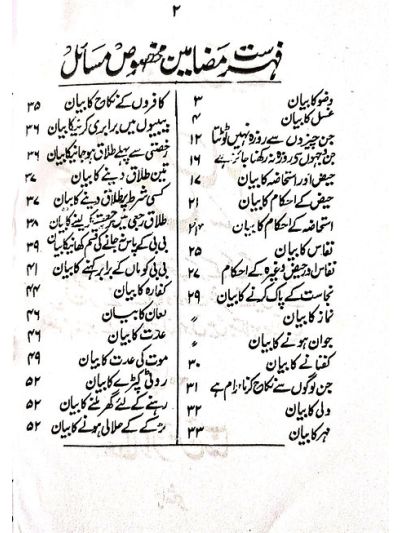 ۲
فہرست مضامین مخصوص مسائل
وضو کا بیان ۳
غسل کا بیان ۴
جن چیزوں سے روزہ نہیں ٹوٹتا ۱۲
جن وجہوں سے روزہ نہ رکھنا جائز ہے ۱۶
حیض اور استحاضہ کا بیان ۱۷
حیض کے احکام کا بیان ۲۱
استحاضہ کے احکام کا بیان ۲۴
نفاس کا بیان ۲۵
نفاس اور حیض وغیرہ کے احکام ۲۷
نجاست کے پاک کرنے کا بیان ۲۹
نماز کا بیان 〃
جوان ہونے کا بیان 〃
کفنانے کا بیان ۳۰
جن لوگوں سے نکاح کرنا حرام ہے ۳۱
ولی کا بیان ۳۲
مہر کا بیان ۳۳
کافروں کے نکاح کا بیان ۳۵
بیبیوں میں برابری کرنیکا بیان ۳۶
رخصتی سے پہلے طلاق ہو جانیکا بیان ۳۶
تین طلاق دینے کا بیان ۳۷
کسی شرط پر طلاق دینے کا بیان ۳۷
طلاق رجعی میں رجعت کر لینے کا بیان ۳۸
بی بی کے پاس نہ جانے کی قسم کھانیکا بیان ۳۹
بی بی کو ماں کے برابر کہنے کا بیان ۴۱
کفارہ کا بیان ۴۴
لعان کا بیان ۴۶
عدت کا بیان ۴۶
موت کی عدت کا بیان ۴۹
روٹی کپڑے کا بیان ۵۲
رہنے کے لئے گھر ملنے کا بیان ۵۲
لڑکے کے حلالی ہونے کا بیان ۵۲